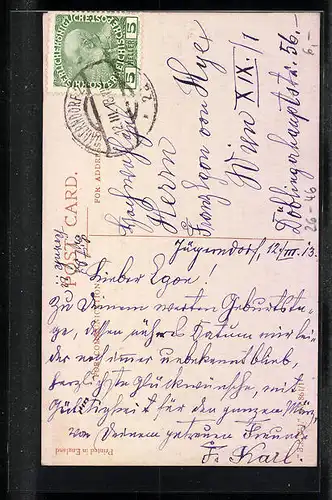 KAISERLICHE KÖNIGLICHE ÖSTERREICHISCHE POST
5 HELLER 5
JÄGERNDORF
12.III.13
POST CARD.
FOR ADDRESS
Hochwohlgeb.
Herrn
Franz Egon von Hye
Wien XIX/1
Döblingerhauptstr. 56.
6,-
26-46
Jägerndorf, 12/III. 13.
Lieber Egon!
Zu Deinem werten Geburtsta-
ge, dessen nähres Datum mir lei-
der noch immer unbekannt blieb,
herzlichste Glückwünsche, mit
Gültigkeit für den ganzen März,
von Deinem getreuen Freund
Fr. Karl.
Printed in England